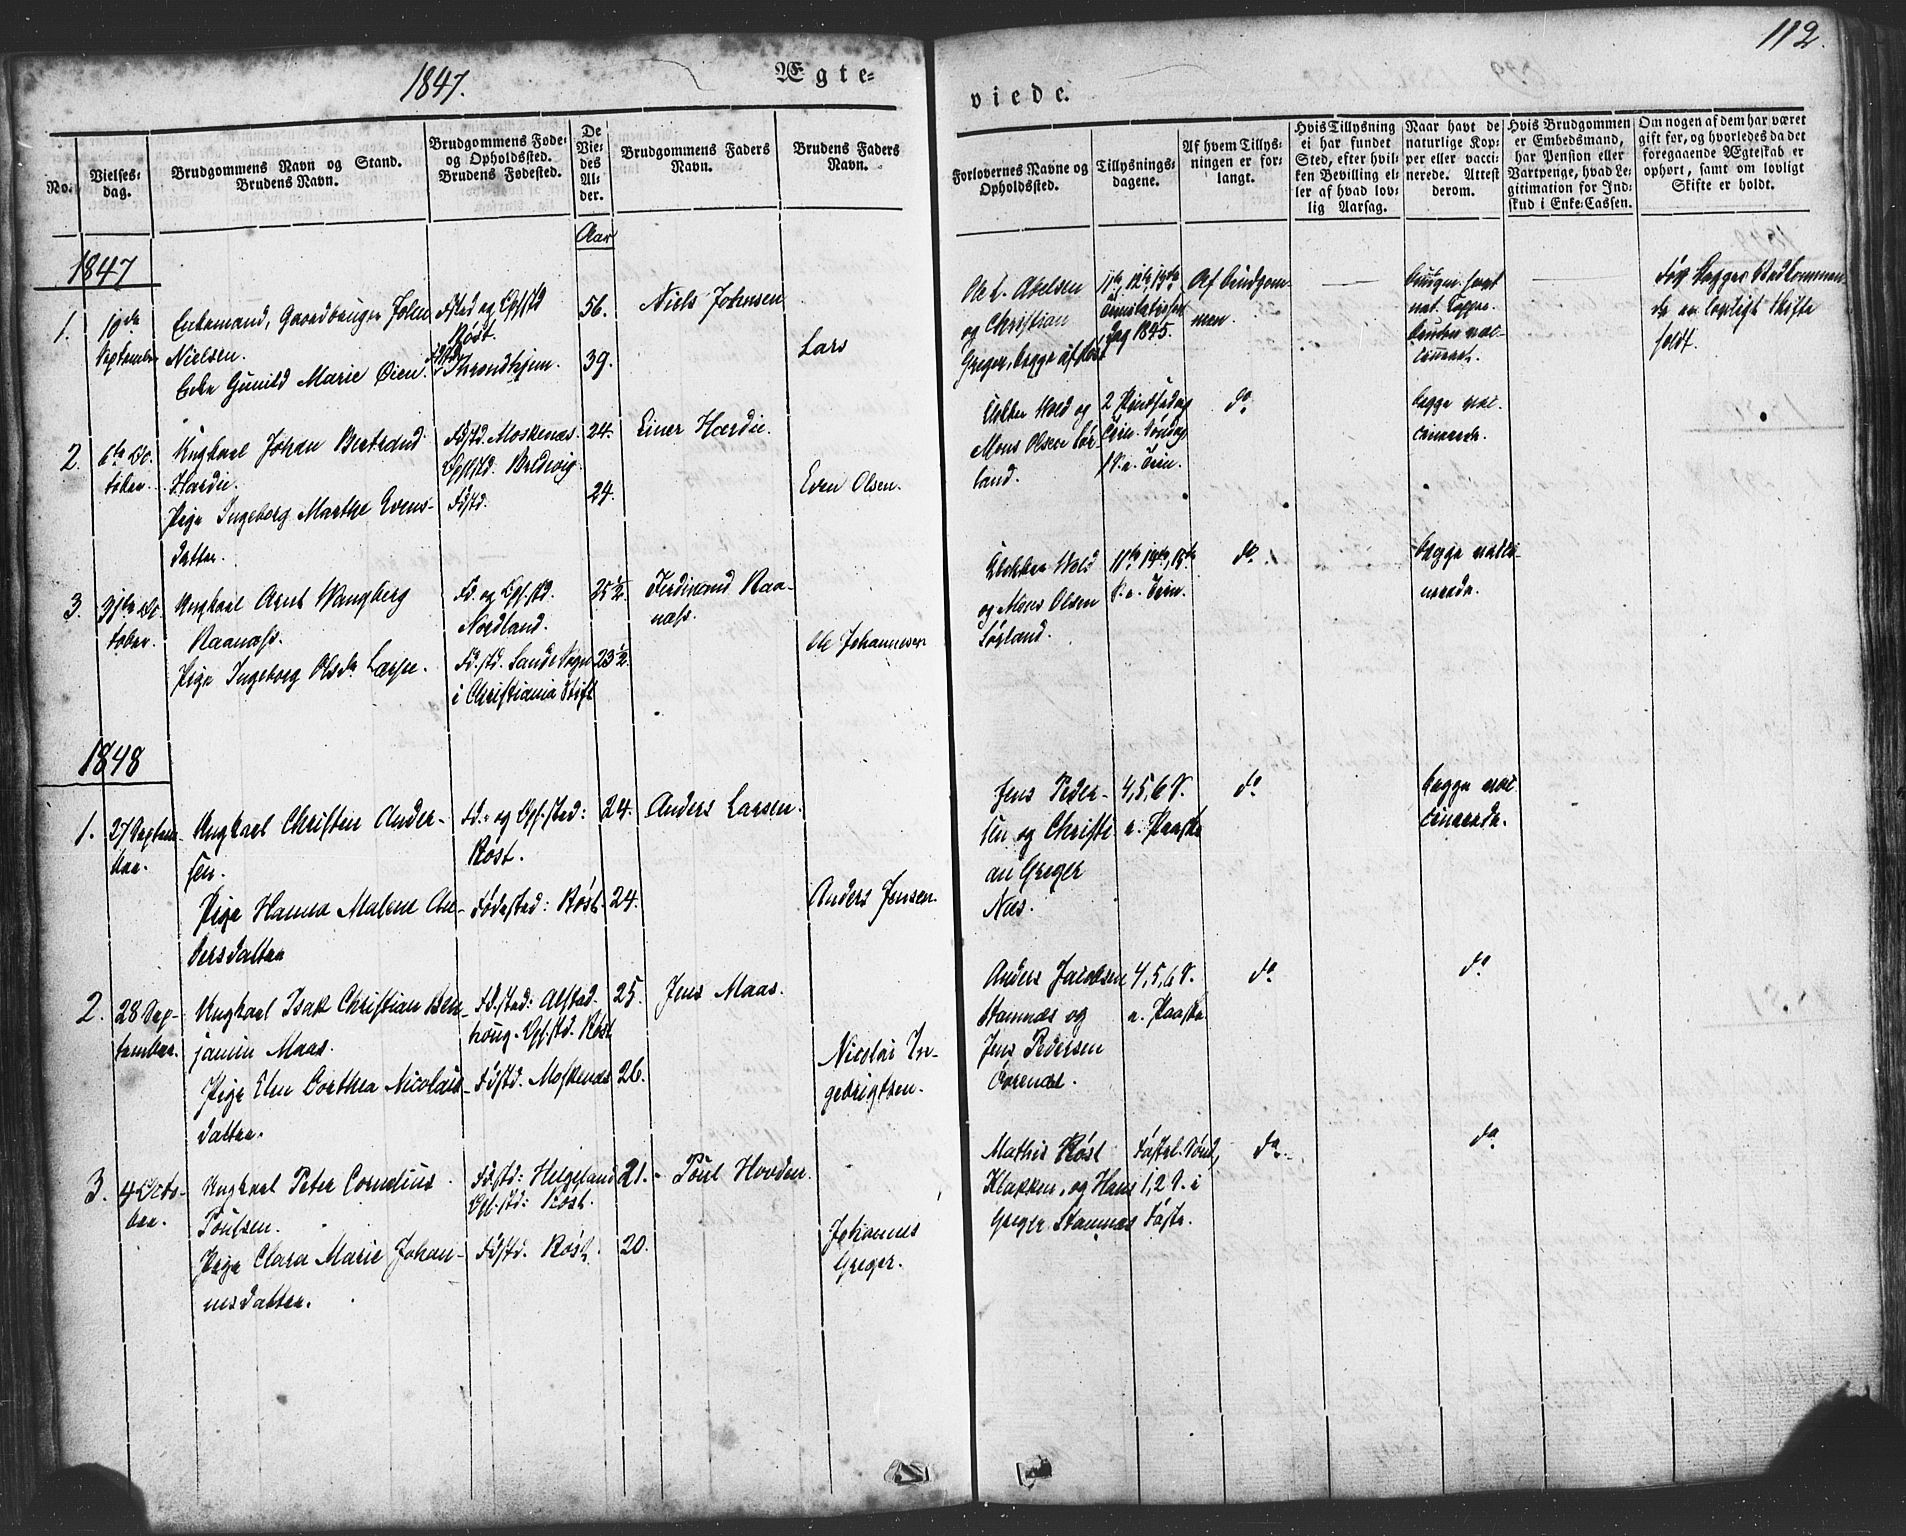 112.
1847.
Ægte-
viede.
No.
Vielses-
dag.
Brudgommens Navn og Stand.
Brudens Navn.
Brudgommens Føde-
og Opholdssted.
Brudens Fødested.
De
Vie-
des
Al-
der.
Brudgommens Faders
Navn.
Brudens Faders
Navn.
Forlovernes Navne og
Opholdssted.
Tillysnings-
dagene.
Af hvem Tillys-
ningen er for-
langt.
Hvis Tillysning
ei har fundet
Sted, efter hvil-
ken Bevilling el-
ler af hvad lov-
lig Aarsag.
Naar havt de
naturlige Kop-
per eller vacci-
nerede. Attest
derom.
Hvis Brudgommen
er Embedsmand,
har Pension eller
Vartpenge, hvad Le-
gitimation for Ind-
skud i Enke-Cassen.
Om nogen af dem har været
gift før, og hvorledes da det
foregaaende Ægteskab er
ophørt, samt om lovligt
Skifte er holdt.
Aar
1847
1.
19de
September
Enkemand, Gaardbruger John
Nielsen.
Enke Gunild Marie Øien.
Fsted og Opstd
Røst.
Fdstd
Throndhjem.
56.
39.
Niels Johnsen
Lars
Ole L. Abelsen
og Christian
Greger, begge af Røst
11te, 12te, 13te
Trinitatissøn
dag 1845.
Af Brudgom
men.
Brudgm. havt
nat. Kopper
Bruden vac-
cineret.
For begges Vedkommen
de er lovligt Skifte
holdt.
2.
6te Oc.
tober.
Ungkarl Johan Bertrand
Hardie.
Pige Ingeborg Marthe Evens-
datter.
Fdstd. Moskenæs.
Opstd. Bredevig
Fdstd.
24.
24.
Einer Hardie.
Even Olsen.
Klokker Wold og
Mons Olsen Sør-
land.
2 Pindsedag
Trin. Søndag
1 S. e. Trin.
do
begge vac-
cinerede.
3.
Oc
tober.
Ungkarl Arnt Wangberg
Raanæss.
Pige Ingeborg Olsdr Larsen.
Fd. og Opstd.
Nordland.
Fd.std. Sande Sogn
i Christiania Stift
25½
23½
Ferdinand Raa-
næss.
Ole Johannesen
Klokker Wold
og Mons Olsen
Sørland.
S. e. Trin.
do
begge vacci-
nerede.
1848
1.
27 Septem-
ber.
Ungkarl Christen Ander-
sen.
Pige Hanna Malene An-
dersdatter
Fd.- og Op.sted:
Røst.
Fødested: Røst.
24.
24.
Anders Larsen.
Anders Jensen.
Jens Peder-
sen og Christi
an Greger
Næs.
4, 5, 6 S.
e. Paaske
do
begge vac
cinerede.
2.
28 Sep-
tember.
Ungkarl Isak Christian Ben-
jamin Maas.
Pige Elen Dorthea Nicolais
datter.
Fd.sted: Alstad-
houg. Op.std. Røst
Fdstd. Moskenæs
25.
26.
Jens Maas.
Nicolai In-
gebrigtsen.
Anders Jacobsen
Stamnæs og
Jens Pedersen
4, 5, 6 S.
e. Paaske
do
do
3.
4 Octo-
ber.
Ungkarl Peter Cornelius
Poulsen.
Pige Clara Marie Johan-
nesdatter.
Fdstd: Helgeland
Op.std: Røst.
Fdstd. Røst.
21.
20.
Poul Hovden.
Johannes
Greger.
Mathis Røst
Klakken, og Hans
Greger Stamnæs
Fastel. Sønd,
1, 2 S. i
Faste.
do
do